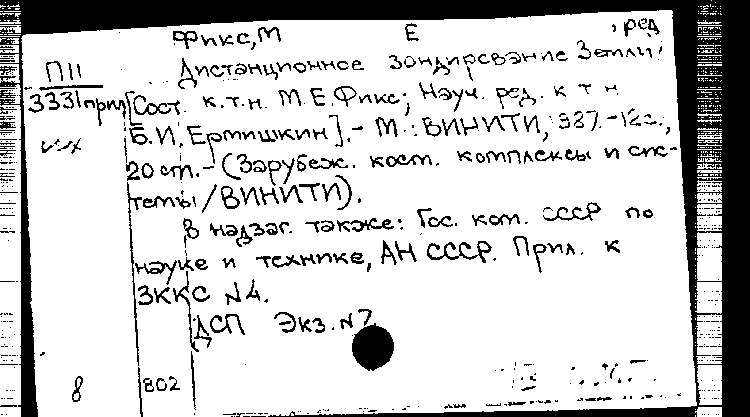 Фикс, М Е , ред
П11 Дистанционное зондирование Земли/
3331прил [Сост. к.т.н. М.Е.Фикс; Науч. ред. к т н
Б.И. Ермишкин].- М.: ВИНИТИ, 987.-12с.,
20 см.- (Зарубеж. косм. комплексы и сис-
темы/ВИНИТИ).
В надзаг. также: Гос. ком. СССР по
науке и технике, АН СССР. Прил. к
ЗККС №4.
ДСП Экз. №7
8 802